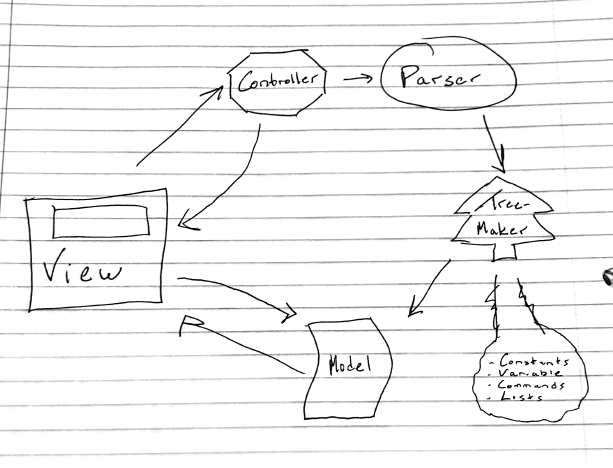 Controller
Parser
Tree-
Maker
View
Model
- Constants
- Variable
- Commands
- Lists